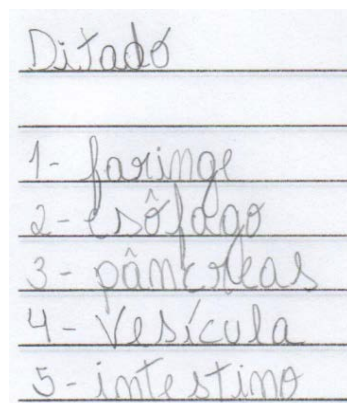 Ditado
1- faringe
2- esôfago
3- pâncreas
4- Vesícula
5- intestino